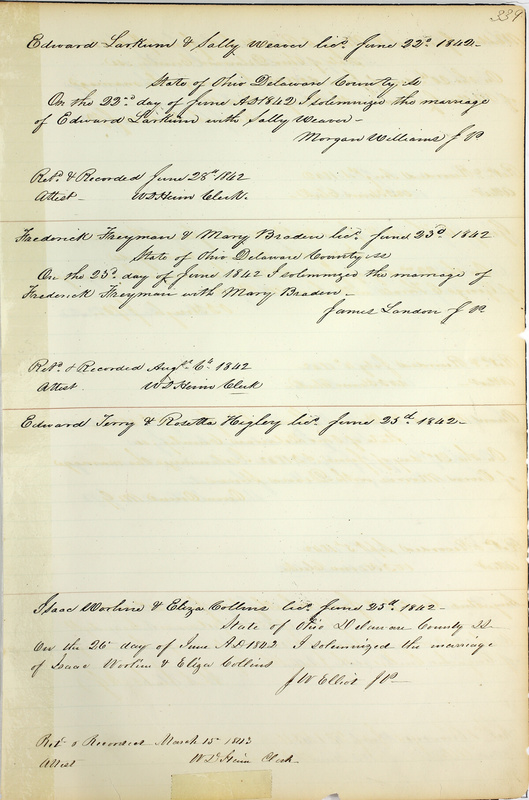 339
Edward Larkum & Sally Weaver lic. June 22d 1842 -
State of Ohio Delaware County ss
On the 22nd day of June AD 1842 I solemnized the marriage
of Edward Larkum with Sally Weaver -
Morgan Williams J P.
Retd & Recorded June 28th 1842
Attest - W D Heim Clerk.
Frederick Freyman & Mary Braden lic. June 23d 1842
State of Ohio Delaware County ss
On the 23d. day of June 1842 I solemnized the marriage of
Frederick Freyman with Mary Braden -
James Landon J P.
Retd. & Recorded Augst. 6th 1842
Attest - W D Heim Clerk
Edward Terry & Rosetta Higley lic. June 25th 1842 -
Isaac Worline & Eliza Collins lic. June 25th 1842 -
State of Ohio Delaware County SS -
On the 26 day of June AD 1842 I solemnized the marriage
of Isaac Worline & Eliza Collins
J W Elliot J P -
Retd & Recorded March 15 1843
Attest W D Heim Clerk